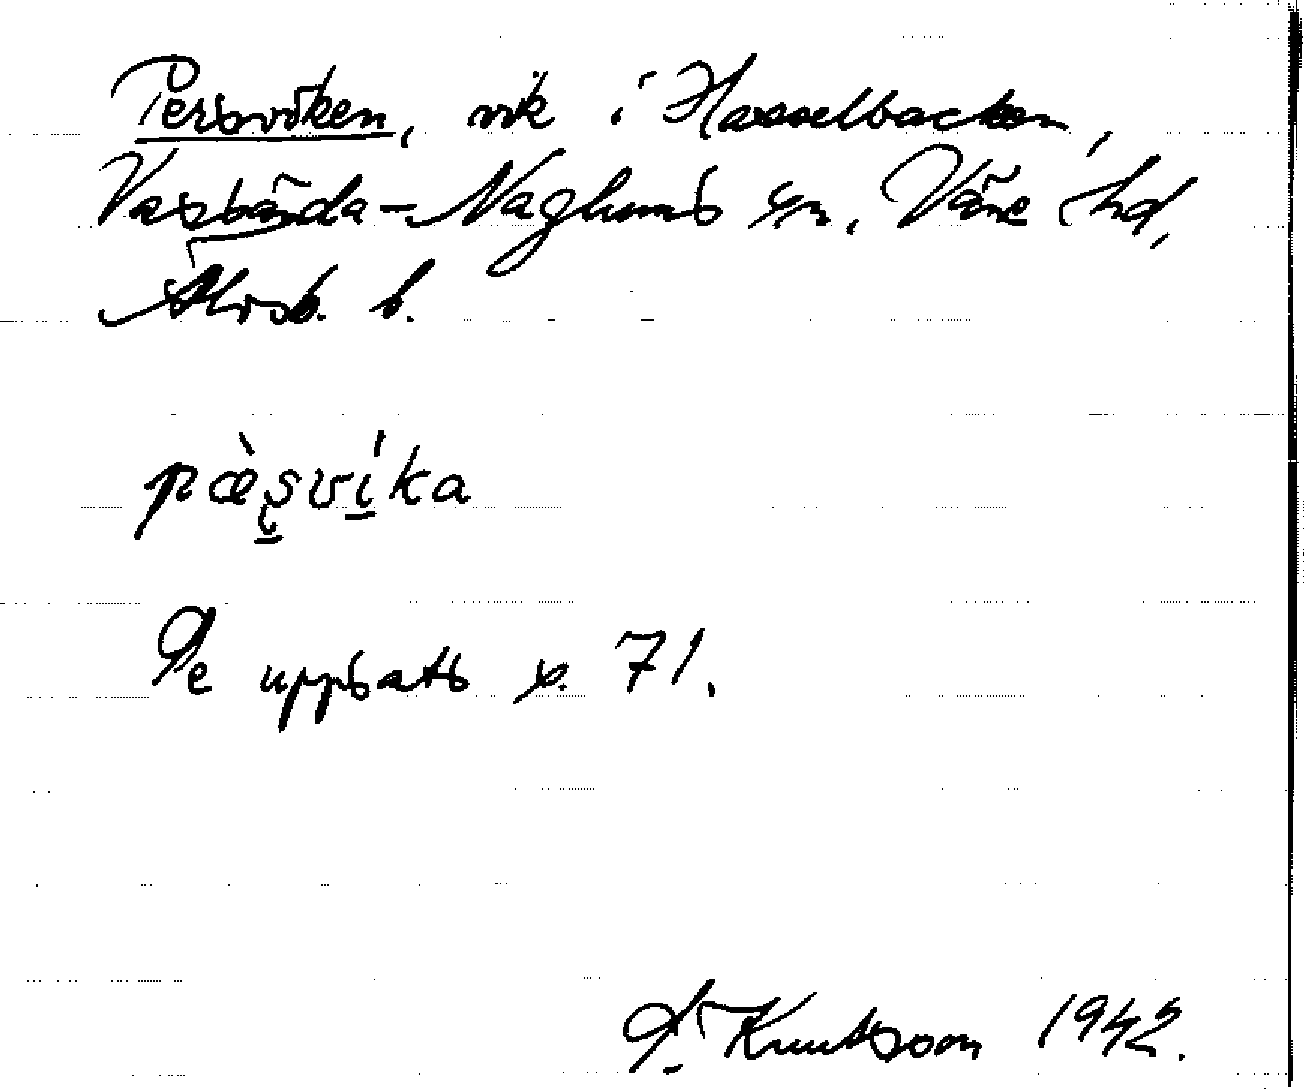 Persviken, vik i Hasselbacken,
Vassända-Naglums sn, Väne hd,
Älvsb. l.
pæ̀ʂvíka
Se uppsats s. 71.
Knutsson 1942.